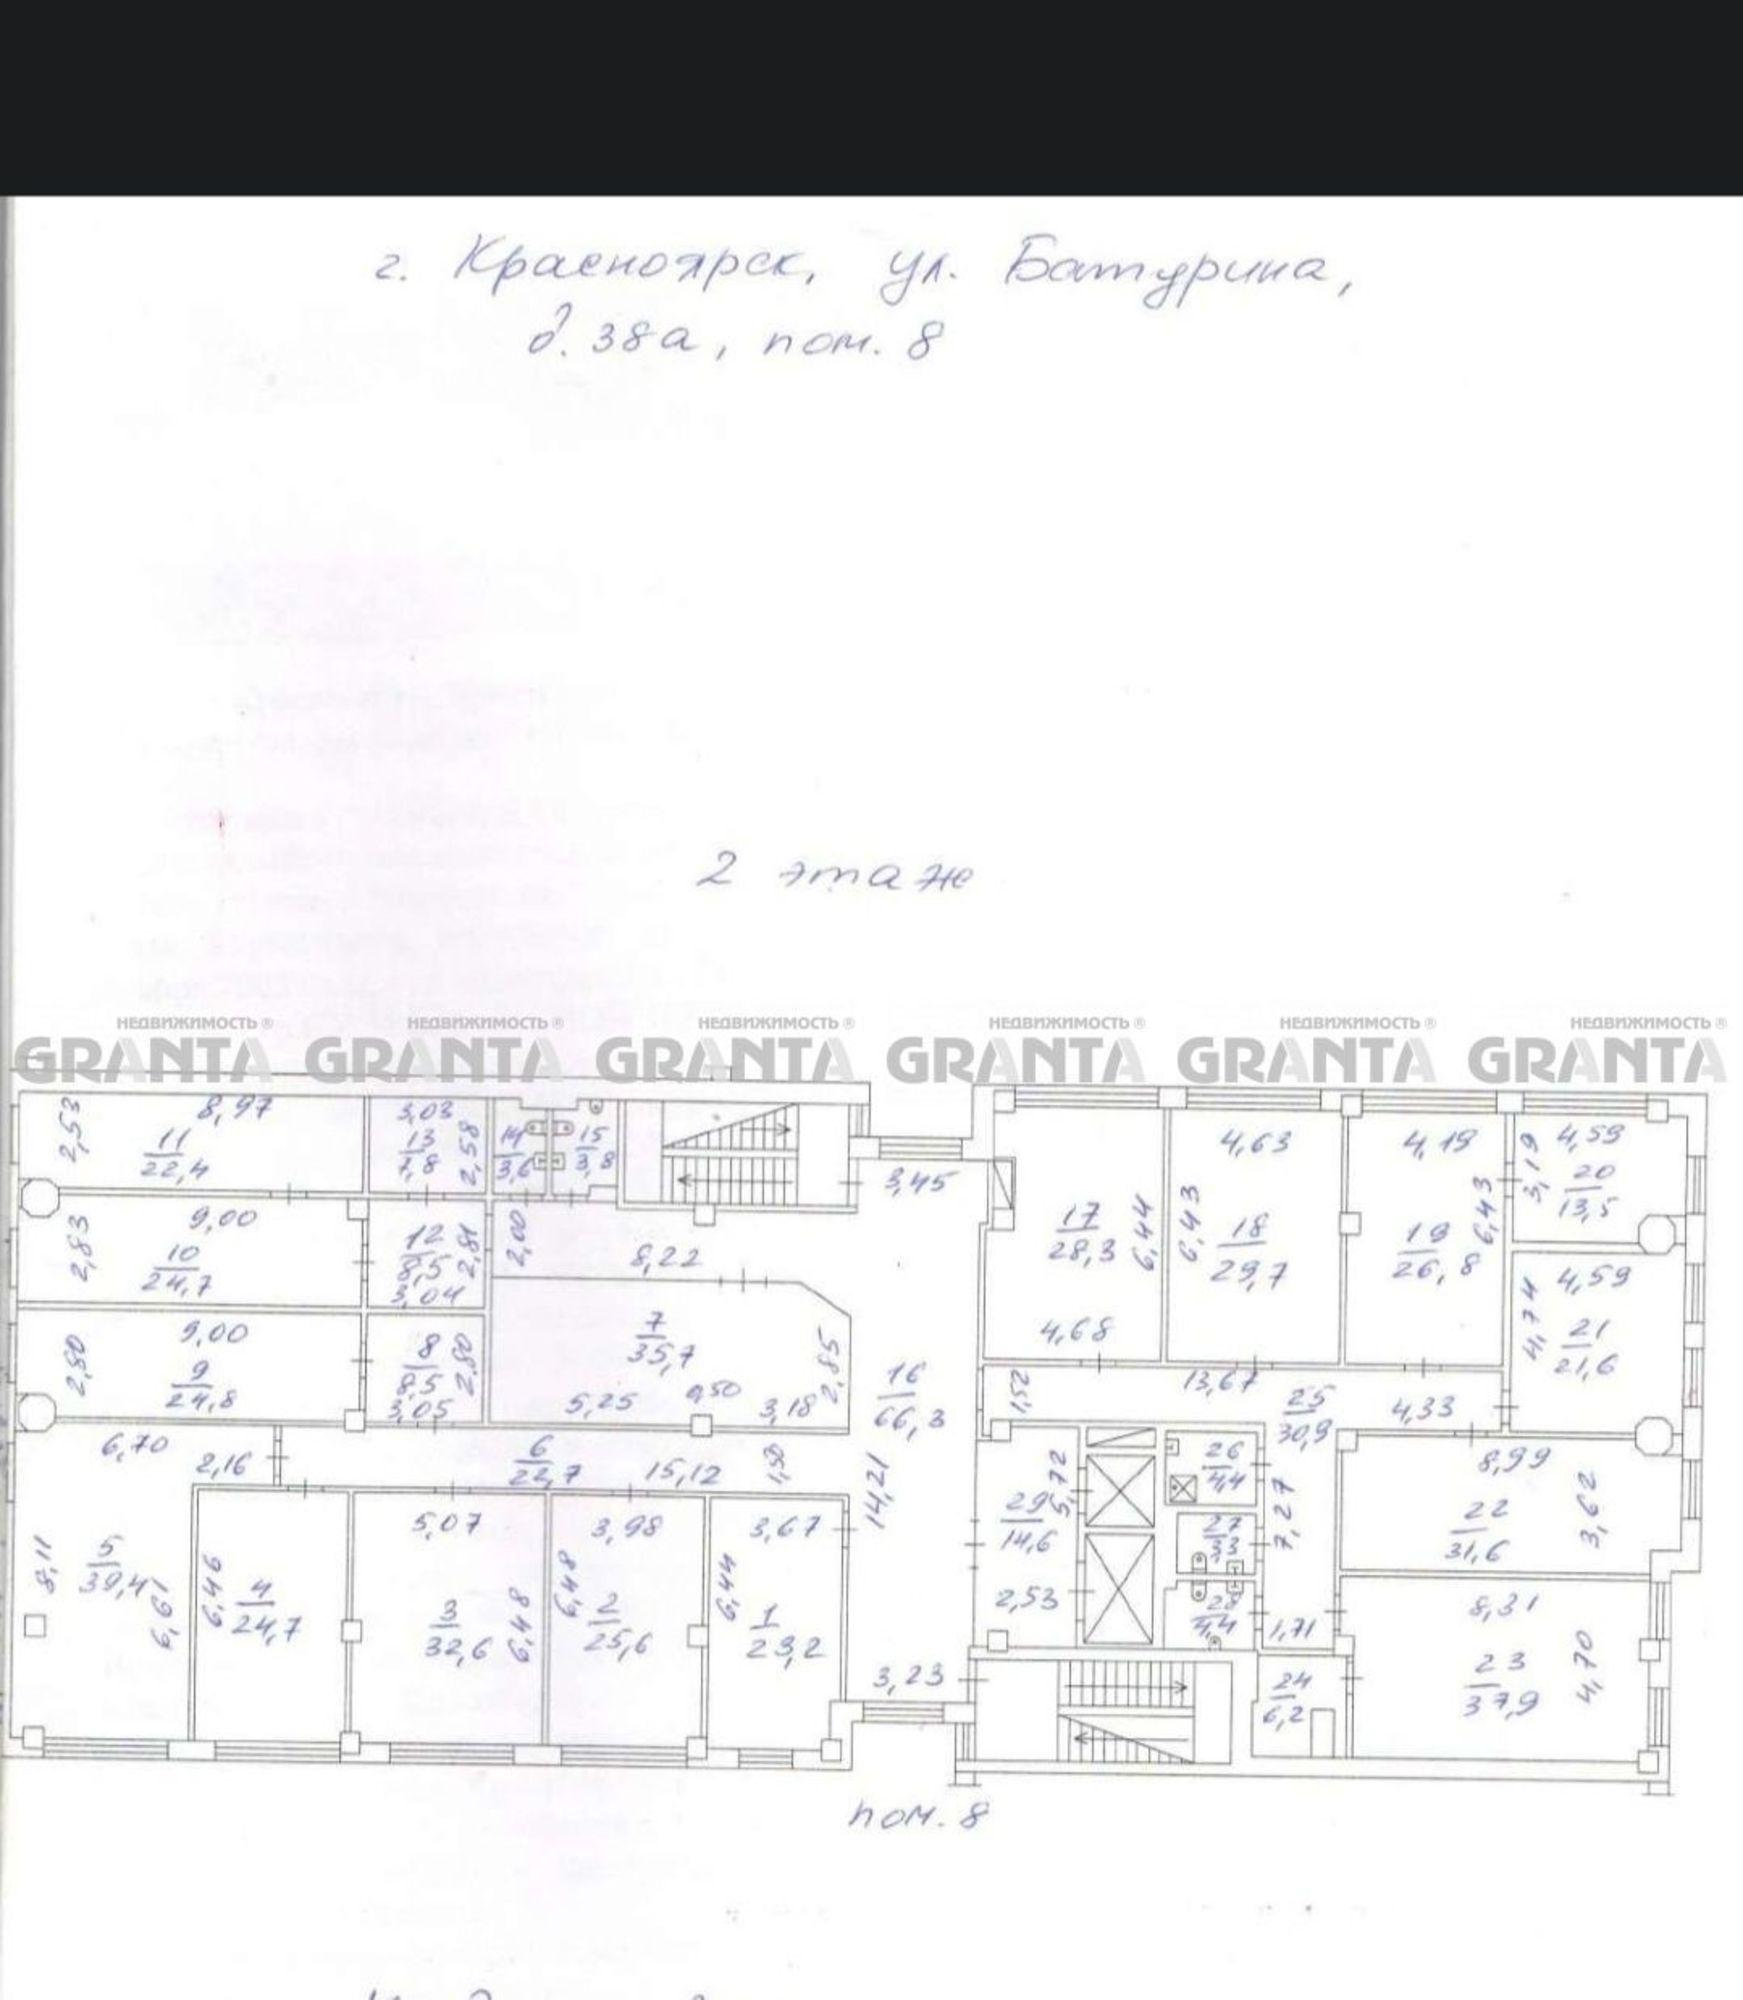 г. Красноярск, ул. Батурина,
д. 38а, пом. 8
2 этаж
НЕДВИЖИМОСТЬ ® НЕДВИЖИМОСТЬ ® НЕДВИЖИМОСТЬ ® НЕДВИЖИМОСТЬ ® НЕДВИЖИМОСТЬ ® НЕДВИЖИМОСТЬ ®
GRANTA GRANTA GRANTA GRANTA GRANTA GRANTA
2,53
8,97
11
22,4
3,03
13
7,8
2,58
14
3,6
15
3,8
3,45
2,83
9,00
10
24,7
12
8,5
2,81
3,04
2,00
8,22
2,80
9,00
9
24,8
8
8,5
2,80
3,05
7
35,7
5,25
0,50
3,18
2,85
16
66,3
14,21
6,70
2,16
6
22,7
15,12
1,50
8,11
5
39,4
6,61
6,46
4
24,7
5,07
3
32,6
6,48
3,98
6,48
2
25,6
3,67
6,44
1
23,2
3,23
17
28,3
6,44
4,68
4,63
6,43
18
29,7
4,19
19
26,8
6,43
3,19
4,59
20
13,5
4,74
4,59
21
21,6
1,52
13,67
25
30,9
4,33
5,72
29
14,6
2,53
26
4,4
27
3,3
28
4,4
7,27
1,71
8,99
22
31,6
3,62
8,31
23
37,9
4,70
24
6,2
пом. 8